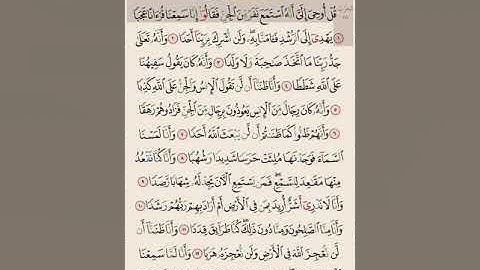 قُلْ أُوحِىَ إِلَىَّ أَنَّهُ ٱسْتَمَعَ نَفَرٌ مِّنَ ٱلْجِنِّ فَقَالُوٓا۟ إِنَّا سَمِعْنَا قُرْءَانًا عَجَبًا
١ يَهْدِىٓ إِلَى ٱلرُّشْدِ فَـَٔامَنَّا بِهِۦ ۖ وَلَن نُّشْرِكَ بِرَبِّنَآ أَحَدًا ٢ وَأَنَّهُۥ تَعَٰلَىٰ
جَدُّ رَبِّنَا مَا ٱتَّخَذَ صَٰحِبَةً وَلَا وَلَدًا ٣ وَأَنَّهُۥ كَانَ يَقُولُ سَفِيهُنَا
عَلَى ٱللَّهِ شَطَطًا ٤ وَأَنَّا ظَنَنَّآ أَن لَّن تَقُولَ ٱلْإِنسُ وَٱلْجِنُّ عَلَى ٱللَّهِ كَذِبًا
٥ وَأَنَّهُۥ كَانَ رِجَالٌ مِّنَ ٱلْإِنسِ يَعُوذُونَ بِرِجَالٍ مِّنَ ٱلْجِنِّ فَزَادُوهُمْ رَهَقًا
٦ وَأَنَّهُمْ ظَنُّوا۟ كَمَا ظَنَنتُمْ أَن لَّن يَبْعَثَ ٱللَّهُ أَحَدًا ٧ وَأَنَّا لَمَسْنَا
ٱلسَّمَآءَ فَوَجَدْنَٰهَا مُلِئَتْ حَرَسًا شَدِيدًا وَشُهُبًا ٨ وَأَنَّا كُنَّا نَقْعُدُ
مِنْهَا مَقَٰعِدَ لِلسَّمْعِ ۖ فَمَن يَسْتَمِعِ ٱلْـَٔانَ يَجِدْ لَهُۥ شِهَابًا رَّصَدًا ٩
وَأَنَّا لَا نَدْرِىٓ أَشَرٌّ أُرِيدَ بِمَن فِى ٱلْأَرْضِ أَمْ أَرَادَ بِهِمْ رَبُّهُمْ رَشَدًا ١٠
وَأَنَّا مِنَّا ٱلصَّٰلِحُونَ وَمِنَّا دُونَ ذَٰلِكَ ۖ كُنَّا طَرَآئِقَ قِدَدًا ١١ وَأَنَّا ظَنَنَّآ أَن
لَّن نُّعْجِزَ ٱللَّهَ فِى ٱلْأَرْضِ وَلَن نُّعْجِزَهُۥ هَرَبًا ١٢ وَأَنَّا لَمَّا سَمِعْنَا